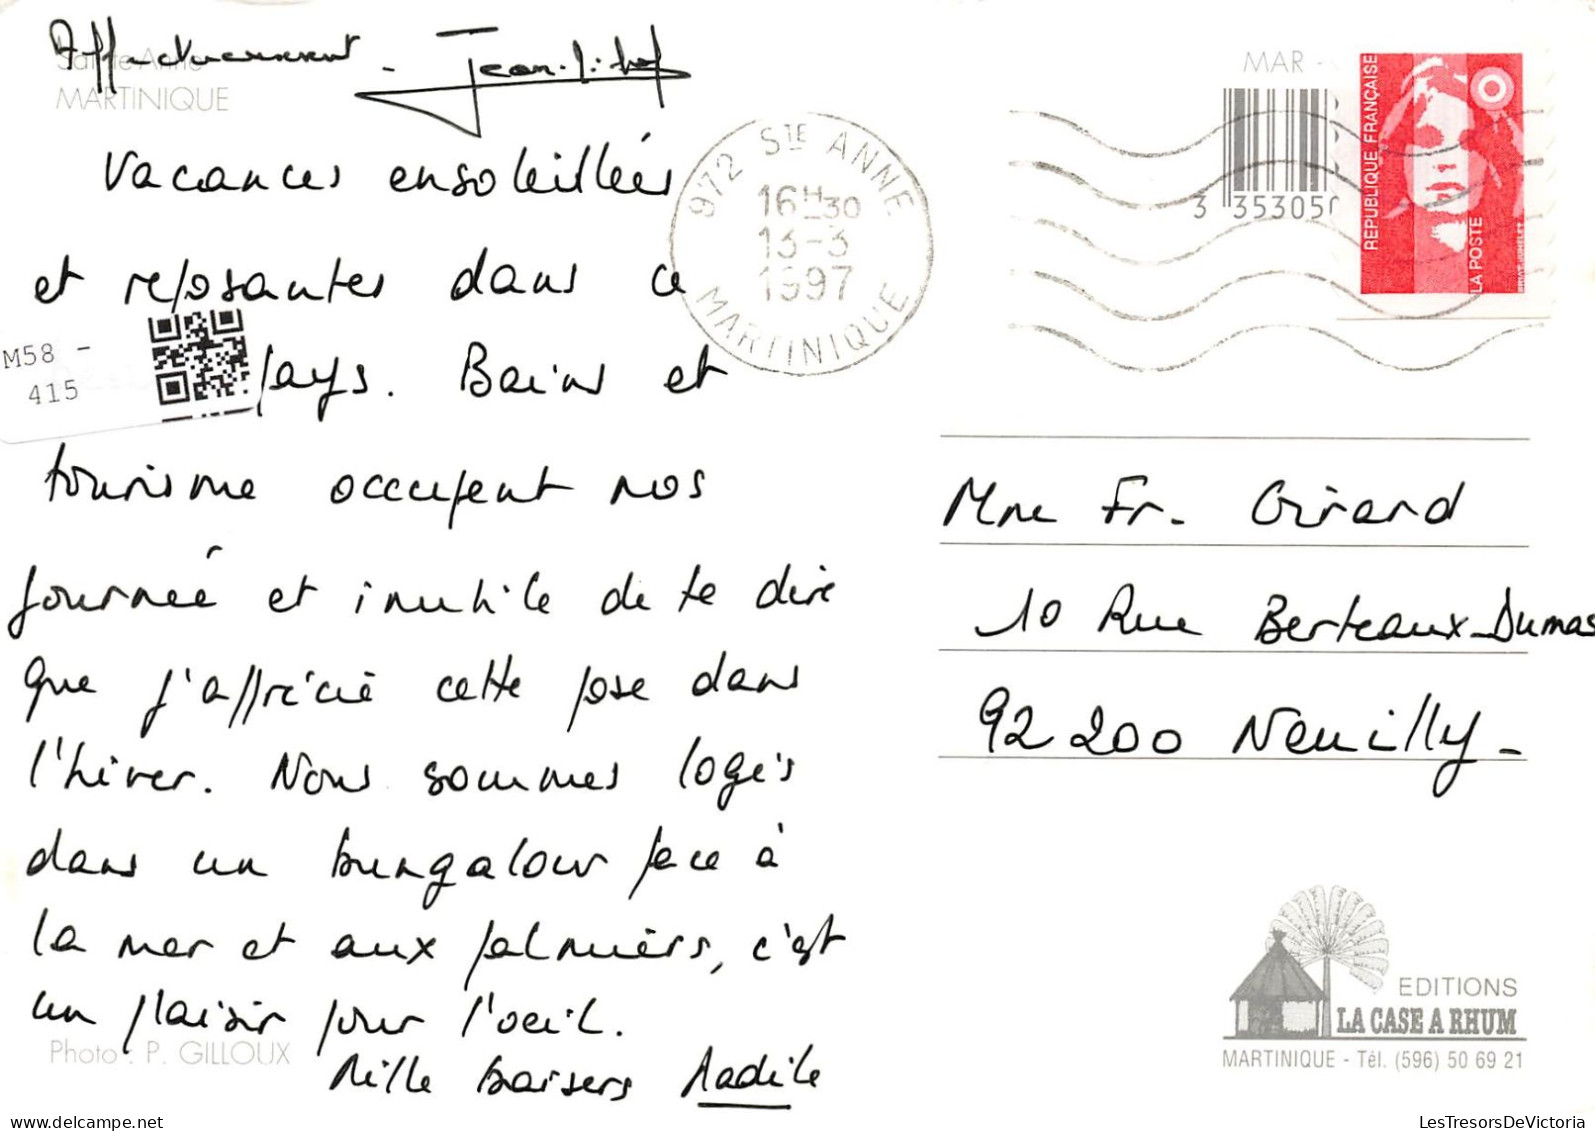 Affectueusement - Jean-Michel
Sainte Anne
MARTINIQUE
Vacances ensoleillées
et reposantes dans ce
pays. Bains et
tourisme occupent nos
journée et inutile de te dire
que j'apprécie cette pose dans
l'hiver. Nous sommes logés
dans un bungalow face à
la mer et aux palmiers, c'est
un plaisir pour l'oeil.
Mille baisers
Photo : P. GILLOUX
M58 -
415
972 STE ANNE
16H30
13-3
1997
MARTINIQUE
MAR -
3 353050
REPUBLIQUE FRANÇAISE
LA POSTE
Mme Fr. Girard
10 Rue Berteaux-Dumas
92 200 Neuilly -
EDITIONS
LA CASE A RHUM
MARTINIQUE - Tél. (596) 50 69 21
LesTresorsDeVictoria.com